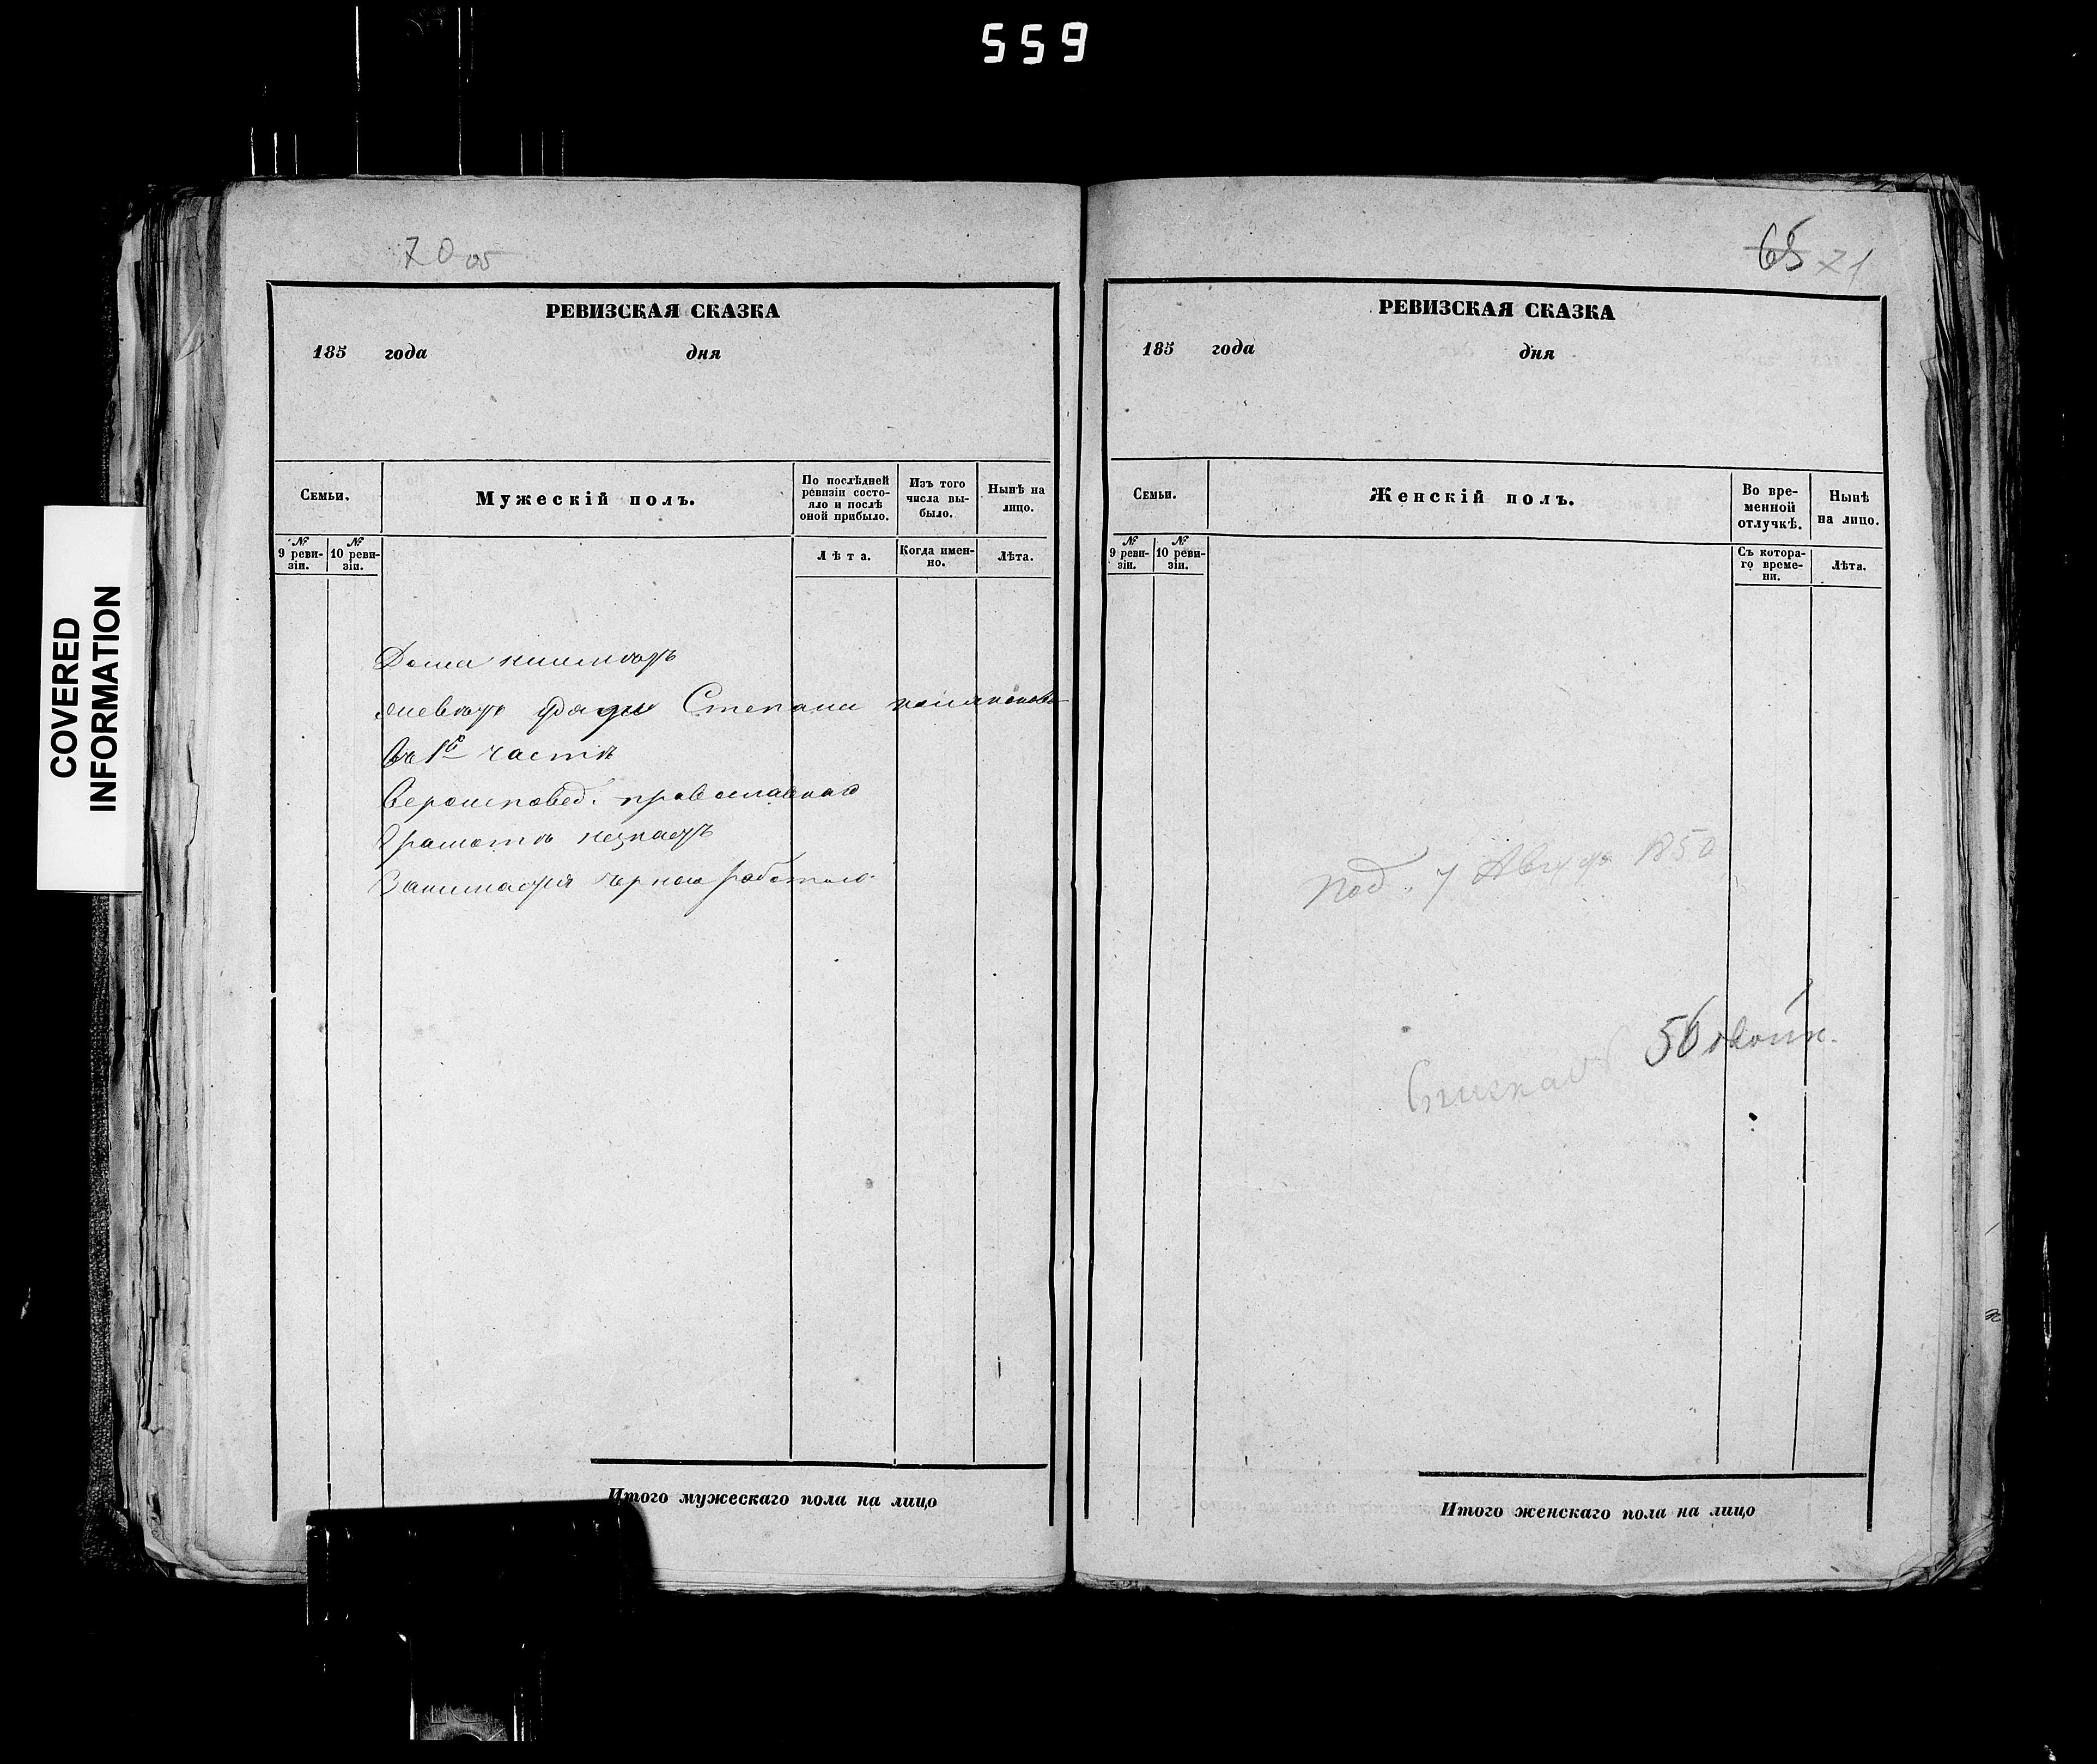 559
COVERED
INFORMATION
70
РЕВИЗСКАЯ СКАЗКА
185 года дня
Семьи.
Мужескій полъ.
По послѣдней
ревизіи состо-
яло и послѣ
оной прибыло.
Изъ того
числа вы-
было.
Нынѣ на
лицо.
№ 9 реви-
зіи.
№ 10 реви-
зіи.
Лѣта.
Когда имен-
но.
Лѣта.
Дома неимѣетъ
живетъ Степана
въ 1й части
Вероисповед. православнаго
Грамотѣ незнаетъ
Занимается черною работою.
Итого мужескаго пола на лицо
65 71
РЕВИЗСКАЯ СКАЗКА
185 года дня
Семьи.
Женскій полъ.
Во вре-
менной
отлучкѣ.
Нынѣ
на лицо.
№ 9 реви-
зіи.
№ 10 реви-
зіи.
Съ котора-
го време-
ни.
Лѣта.
Под. 7 Августа 1850
56
Итого женскаго пола на лицо